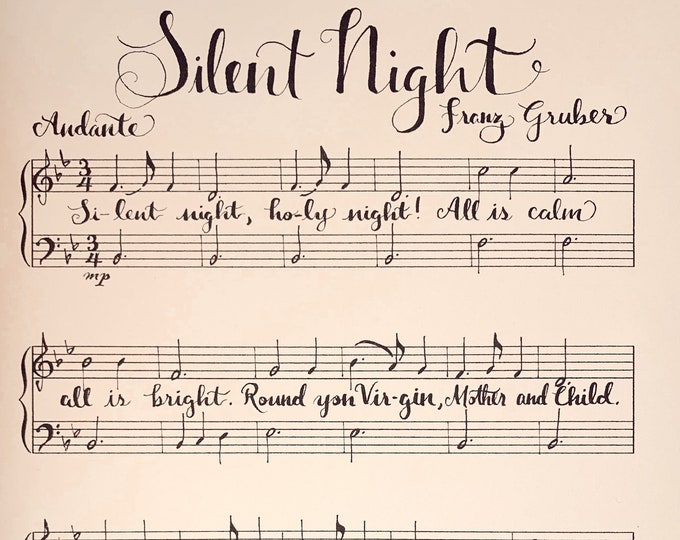 Silent Night
Andante Franz Gruber
3 4
Si-lent night, ho-ly night! All is calm
3 4
mp
all is bright. Round yon Vir-gin, Mother and Child.